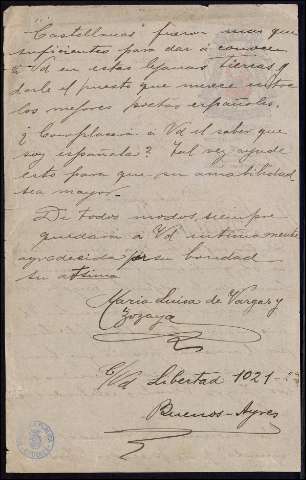 "Castellanas" fueron mas que
suficientes para dar á conocer
á Vd en estas lejanas tierras y
darle el puesto que merece entre
los mejores poetas españoles.
¿Complacerá á Vd el saber que
soy española? Tal vez ayude
esto para que su amabilidad
sea mayor.
De todos modos, siempre
quedará á Vd intimamente
agradecida por su bondad
su atsima
Maria Luisa de Vargas y
Zozaya
C/Vd Libertad 1021-
Buenos-Ayres